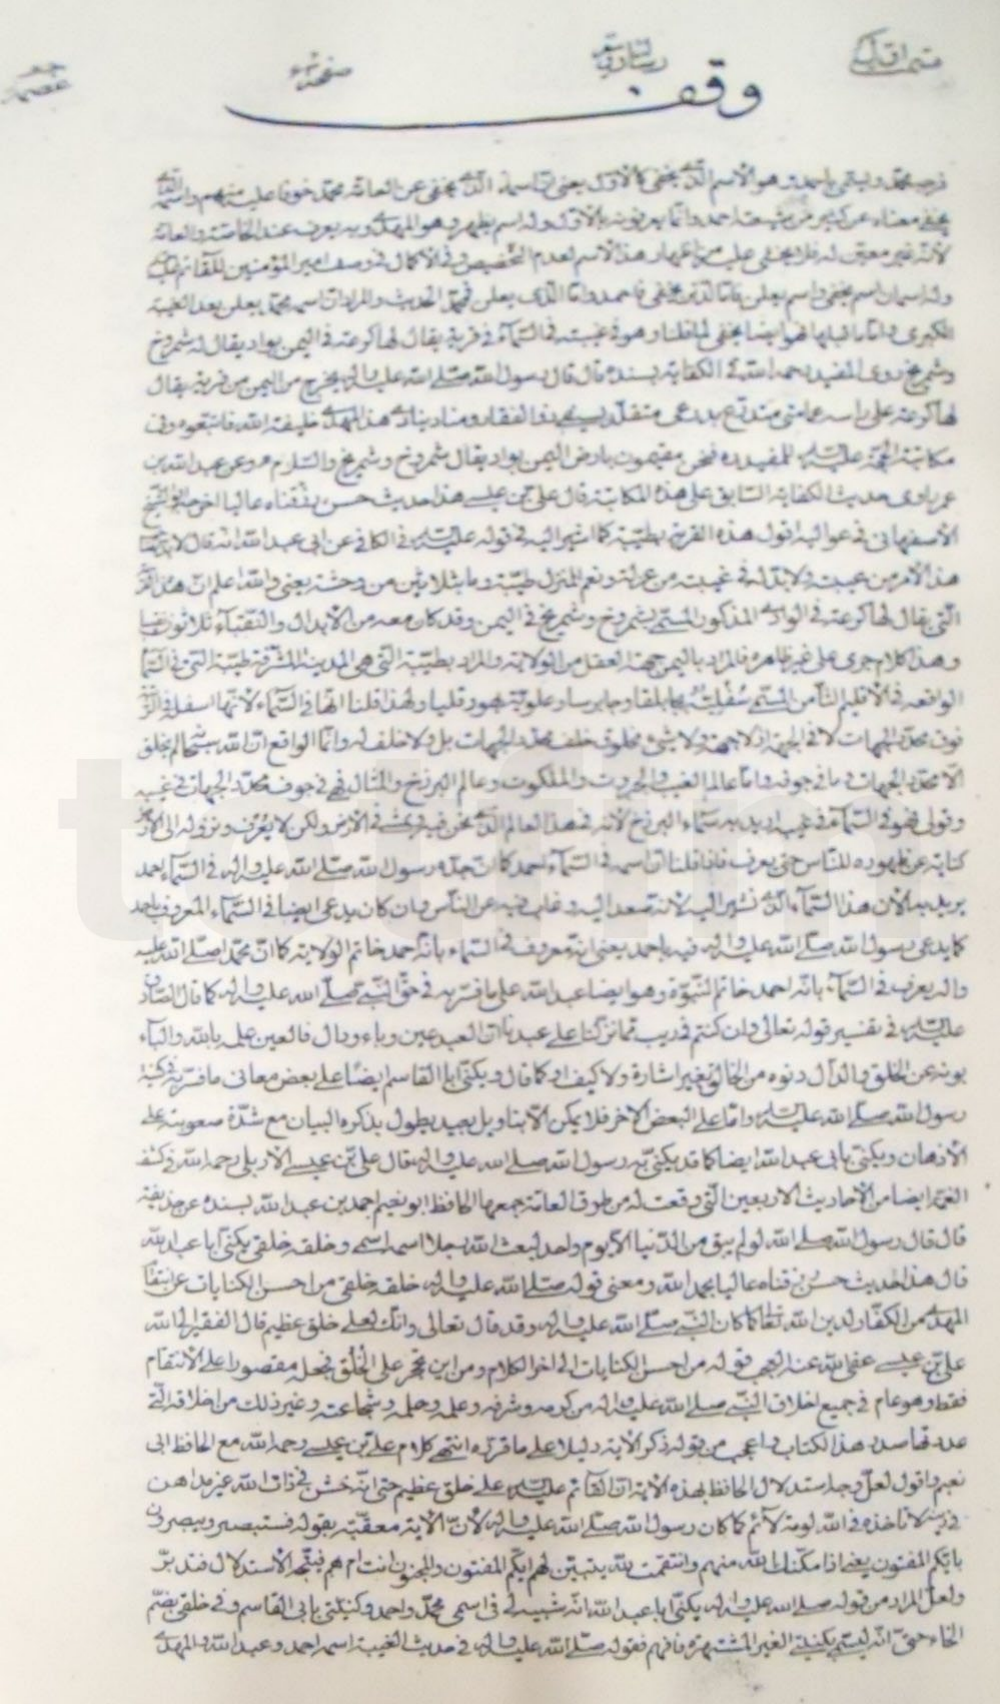 وقف
فرصه محمد ويسمى باحمد وهو الاسم الذي يخفى كالاول يعني ان اسمه الذي يخفى عن العامة محمد خوفا عليه منهم واسمه الذي
يخفى معناه عن كثير من شيعته احمد وانما يعرفونه بالاول وله اسم يظهر وهو المهدي وبه يعرف عند الخاصة والعامة
لانه غير معين له فلا يخفى عليه من اظهار هذا الاسم لعدم التخصيص وفي الاكمال في وصف امير المؤمنين للقائم
وله اسمان اسم يخفى واسم يعلن فاما الذي يخفى فاحمد واما الذي يعلن فمحمد الحديث والمراد ان اسمه محمد يعلن بعد الغيبة
الكبرى واما قبلها فهو ايضا يخفى لما قلنا وهو في غيبته في السماء في قرية يقال لها كرعة في اليمن بواد يقال له شمروخ
وشمريخ روى المفيد رحمه الله في الكفاية بسنده قال قال رسول الله صلى الله عليه واله يخرج من اليمن من قرية يقال
لها كرعة على راسه عمامتي متدرع بدرعي متقلد بسيفي ذو الفقار ومناد ينادي هذا المهدي خليفة الله فاتبعوه وفي
مكاتبة الحجة عليه السلام للمفيد ره فنحن مقيمون بارض اليمن بواد يقال شمروخ وشمريخ والسلام وعن عبدالله بن
عمر باوى حديث الكفاية السابق على هذه المكاتبة قال علي بن عيسى هذا حديث حسن رزقناه عاليا اخرجه ابو الشيخ
الاصفهاني في عواليه اقول هذه القرية بطيبة كما اشير اليه في قوله عليه السلام في الكافي عن ابي عبد الله انه قال لا بد لصاحب
هذا الامر من غيبة ولا بد له في غيبته من عزلة ونعم المنزل طيبة وما بثلاثين من وحشة يعني والله اعلم ان هذه القرية
التي يقال لها كرعة في الوادي المذكور المسمى بشمروخ وشمريخ في اليمن وقد كان معه من الابدال والنقباء ثلاثون نفسا
وهذا كلام جرى على غير ظاهره فالمراد باليمن جهة العقل من الولاية والمراد بطيبة التي هي المدينة المشرفة طيبة التي في السماء
الواقعة في الاقليم الثامن المسمى سفليته بجابلقا وجابرسا وعلويته بهورقليا ولهذا قلنا انها في السماء لانها اسفل في الرتبة
فوق محدد الجهات لا في الجهة اذ لا جهة ولا شيء مخلوق خلف محدد الجهات بل ولا خلف له وانما الواقع ان الله سبحانه لم يخلق
الا محدد الجهات وما في جوفه واما عالم الغيب والجبروت والملكوت وعالم البرزخ والمثال فهي في جوف محدد الجهات في غيبه
وقولي فهو في السماء في غيبته اريد به سماء البرزخ لانه في هذا العالم الذي نحن فيه فهو في الارض ولكن لا يعرف ونزوله الى الارض
كناية عن ظهوره للناس حتى يعرف فاذا قلنا ان اسمه في السماء احمد كما ان جده رسول الله صلى الله عليه واله في السماء احمد
يريد به الان هذا السماء الذي نشير اليه لانه صعد اليه وغاب فيه عن الناس وان كان يدعى ايضا في السماء المعروف باحمد
كما يدعى رسول الله صلى الله عليه واله فيه باحمد يعني انه معروف في السماء بانه احمد خاتم الولاية كما ان محمدا صلى الله عليه
واله يعرف في السماء بانه احمد خاتم النبوة وهو ايضا عبد الله على ما قرر به في حق النبي صلى الله عليه واله كما قال الصادق
عليه السلام في تفسير قوله تعالى وان كنتم في ريب مما نزلنا على عبدنا ان العبد عين وباء ودال فالعين علمه بالله والباء
بونه عن الخلق والدال دنوه من الخالق بغير اشارة ولا كيف او كما قال ويكنى ابا القاسم ايضا على بعض معاني ما قرر به في كنية
رسول الله صلى الله عليه واله واما على البعض الاخر فلا يمكن الا بتاويل بعيد يطول بذكره البيان مع شدة صعوبته على
الاذهان ويكنى بابي عبد الله ايضا كما قد يكنى به رسول الله صلى الله عليه واله قال علي بن عيسى الاربلي رحمه الله في كشف
الغمة ايضا من الاحاديث الاربعين التي وقعت له من طرق العامة جمعها الحافظ ابو نعيم احمد بن عبد الله بسنده عن حذيفة
قال قال رسول الله صلى الله لو لم يبق من الدنيا الا يوم واحد لبعث الله رجلا اسمه اسمي وخلقه خلقي يكنى ابا عبد الله
قال هذا حديث حسن رزقناه عاليا بحمد الله ومعنى قوله صلى الله عليه واله خلقه خلقي من احسن الكنايات عن انتقام
المهدي من الكفار لدين الله تعالى كما كان النبي صلى الله عليه واله وقد قال تعالى وانك لعلى خلق عظيم قال الفقير الى الله
علي بن عيسى عفى الله عنه العجب قوله من احسن الكنايات الى اخر الكلام ومن اين تحجر على الخلق فجعله مقصورا على الانتقام
فقط وهو عام في جميع اخلاق النبي صلى الله عليه واله من كرمه وشرفه وعلمه وحلمه وشجاعته وغير ذلك من اخلاقه التي
عددتها صدر هذا الكتاب واعجب من قوله ذكر الاية دليلا على ما قرره انتهى كلام علي بن عيسى رحمه الله مع الحافظ ابي
نعيم واقول لعل وجه استدلال الحافظ بهذه الاية ان القائم عليه السلام على خلق عظيم حتى انه خشن في ذات الله غير مداهن
في دينه لا تاخذه في الله لومة لائم كما كان رسول الله صلى الله عليه واله لان الاية معقبة بقوله فستبصر ويبصرون
بايكم المفتون يعني اذا مكنك الله منهم وانتقمت لله يتبين لهم ايكم المفتون والمجنون انت ام هم فيتجه الاستدلال فتدبر
ولعل المراد من قوله صلى الله عليه واله يكنى ابا عبد الله انه شبيه لي في اسمي محمد واحمد وكنيتي بابي القاسم وفي خلقي بضم
الخاء حتى انه ليسمى بكنيتي الغير المشتهرة فافهم فقوله صلى الله عليه واله في حديث الغيبة اسمه احمد وعبد الله والمهدي